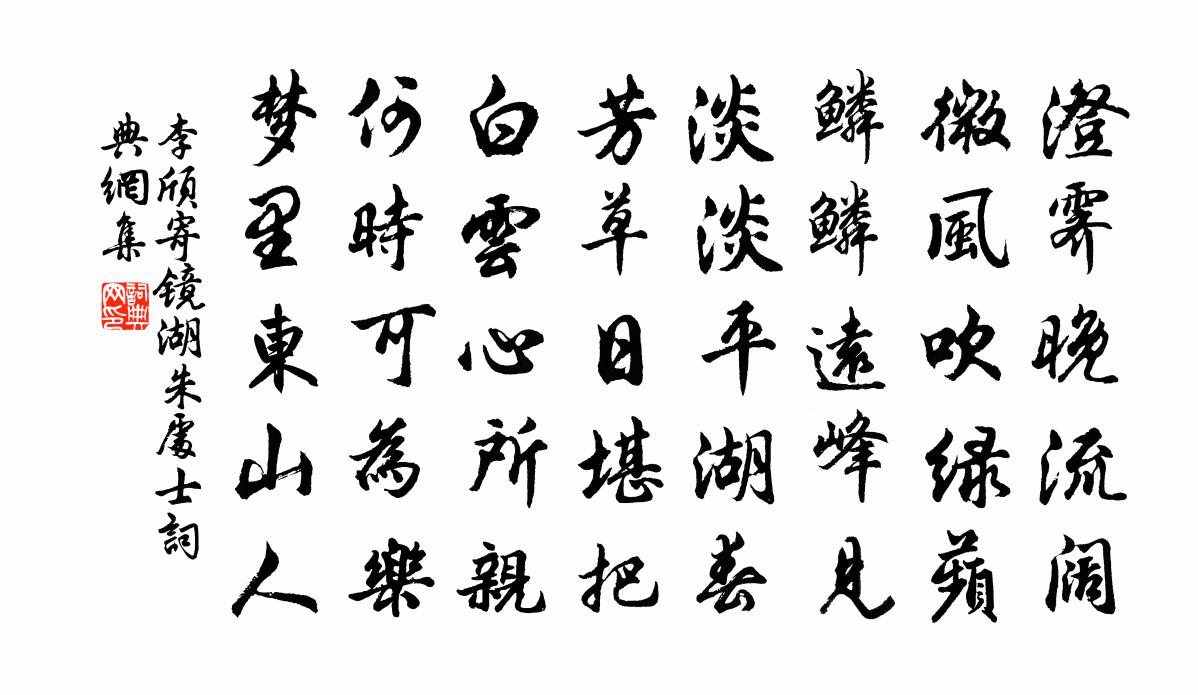 澄霽晚流阔
微風吹绿蘋
鳞鳞遠峰見
淡淡平湖春
芳草日堪把
白雲心所親
何時可為樂
梦里東山人
李頎寄镜湖朱處士詞
典網集
詞典
网印